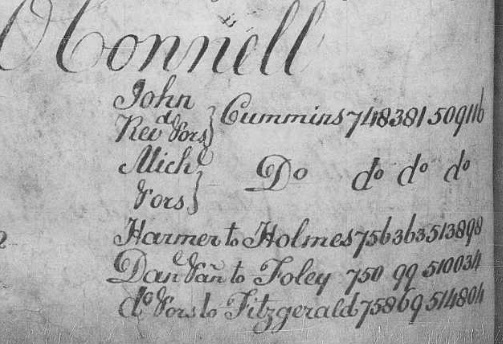 O'Connell
John
Revd &ors } Cummins 748 381 509116
Michl
&ors } Do do do do
Harmer to Holmes 756 363 513898
Danl &an to Foley 750 99 510034
do &ors to Fitzgerald 758 69 514804